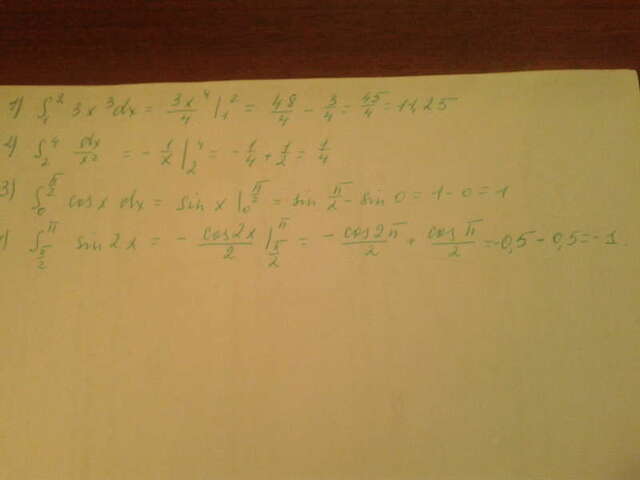 1) ∫₁² 3x³dx = 3x⁴/4 |₁² = 48/4 - 3/4 = 45/4 = 11,25
2) ∫₂⁴ dx/x² = - 1/x |₂⁴ = - 1/4 + 1/2 = 1/4
3) ∫₀^(π/2) cosx dx = sin x |₀^(π/2) = sin π/2 - sin 0 = 1 - 0 = 1
) ∫_(π/2)^π sin2x = - cos2x/2 |_(π/2)^π = - cos2π/2 + cosπ/2 = -0,5 - 0,5 = -1.